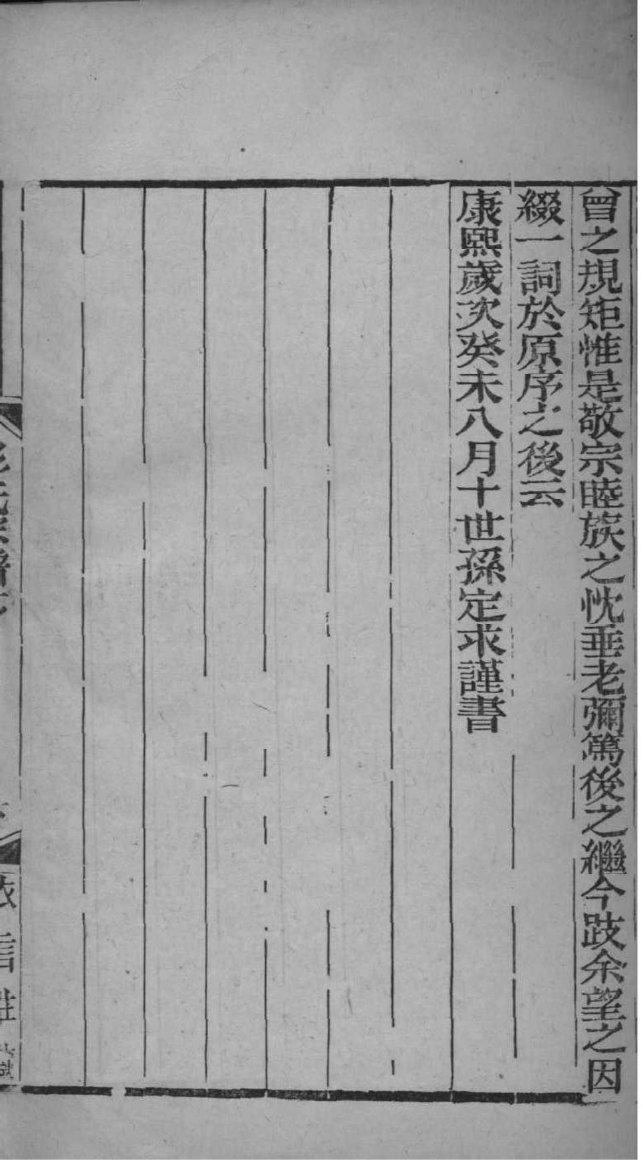 曾之規矩惟是敬宗睦族之忱垂老彌篤後之繼今跂余望之因
綴一詞於原序之後云
康熙歲次癸未八月十世孫定求謹書